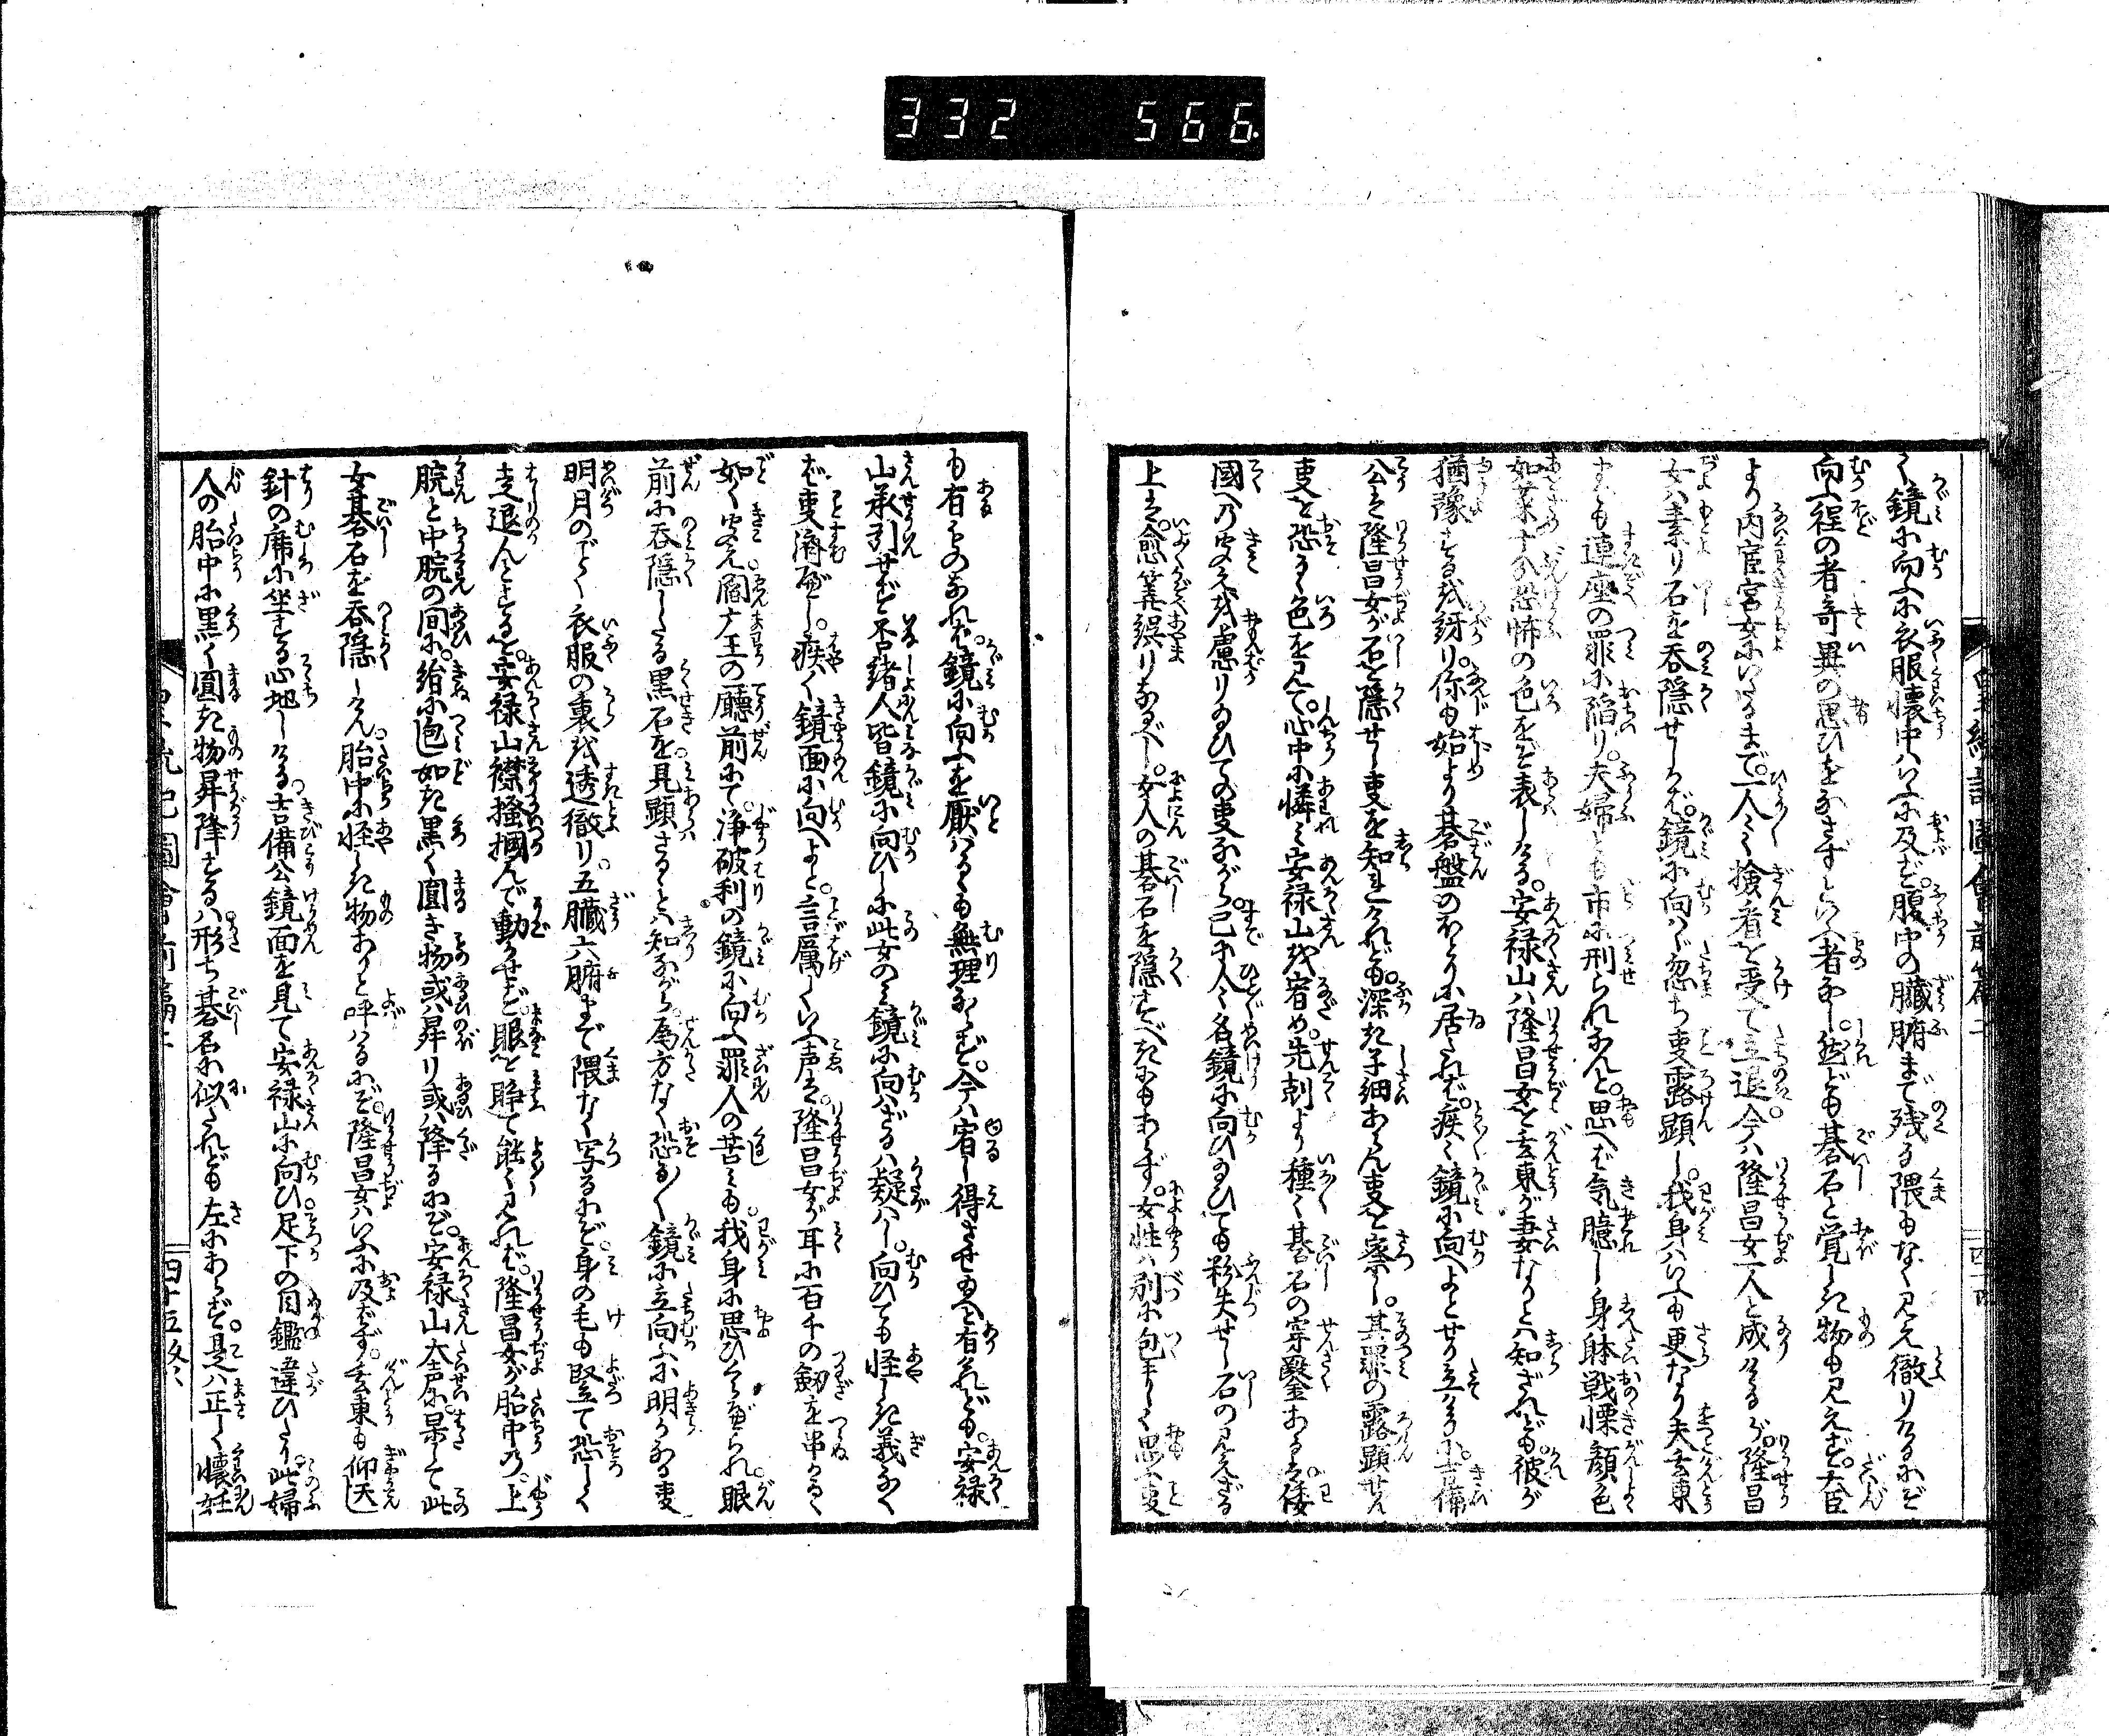 332 566
く鏡に向ふに衣服懐中ハいふに及ばず腹中の臓腑まで残る隈もなく見え徹りけるにぞ
向ふ程の者奇異の思ひをなさずといふ者なし。然ども碁石と覚しき物も見えず。大臣
より内官宮女にいたるまで一人〻〻撿者を受て立退。今ハ隆昌女一人と成けるが。隆昌
女ハ素り石を呑隠せしかバ。鏡に向ハヾ忽ち叓露顕し。我身ハいふも更なり夫玄東
までも連座の罪に陥り。夫婦とも市に刑られなんと。思へバ気臆し身躰戦慄顔色
如菜すが恐怖の色をぞ表しける。安禄山ハ隆昌女を玄東が妻なりとハ知ざれども。彼が
猶豫する我訝り。你も始より碁盤のわとりに居たれバ。疾く鏡に向へよとせり立けるに。吉備
公ハ隆昌女が石を隠せし叓を知玉へけれども。深き子細あらん叓を察し。其罪の露顕せん
叓を恐るゝ色を見て。心中に憐ミ安禄山を宥め。先刻より種〻碁石の穿鑿あるハ。倭
國への聞えを慮りゐひての叓ながら。已に人〻名鏡に向ひゐひても紛失せし石の見えざる
上ハ。愈算誤りなるべし。女人の碁石を隠すべきにもあらず。女性ハ別に包ましく思ふ叓
も有ものなれバ。鏡に向ふを厭ハるゝも無理ならず。今ハ宥し得させ玉へと有けれども。安禄
山承引せず。否諸人皆鏡に向ひしに此女のミ鏡に向ハざるハ疑ハし。向ひても怪しき義なく
バ叓済べし。疾く鏡面に向へよと。言厲しくいふ声ハ。隆昌女が耳に百千の劔を串ぬるゝ
如く聞え閻广王の廳前にて。浄破利の鏡に向ふ罪人の苦ミも。我身に思ひくらべられ。眼
前に呑隠したる黒石を見顕さるゝとハ知ながら。為方なく恐る〳〵鏡に立向ふに明かなる叓
明月のごとく衣服の裏を透徹り。五臓六腑まで隈なく写るにぞ。身の毛も竪て恐しく
走退んとするを。安禄山襟掻掴んで動かせず。眼を睜て能〻見れバ。隆昌女が胎中の。上
脘と中脘の間に。絈に包如き黒く圓き物或ハ昇り或ハ降るにぞ。安禄山大声に。果して此
女碁石を呑隠しけん。胎中に怪しき物ありと呼ハるにぞ。隆昌女ハいふに及ばず。玄東も仰天し
針の席に坐する心地しける。吉備公鏡面を見て安禄山に向ひ。足下の目鑑違ひたり此婦
人の胎中に黒く圓き物昇降するハ。形ち碁石に似たれども左にあらず。是ハ正しく懐妊